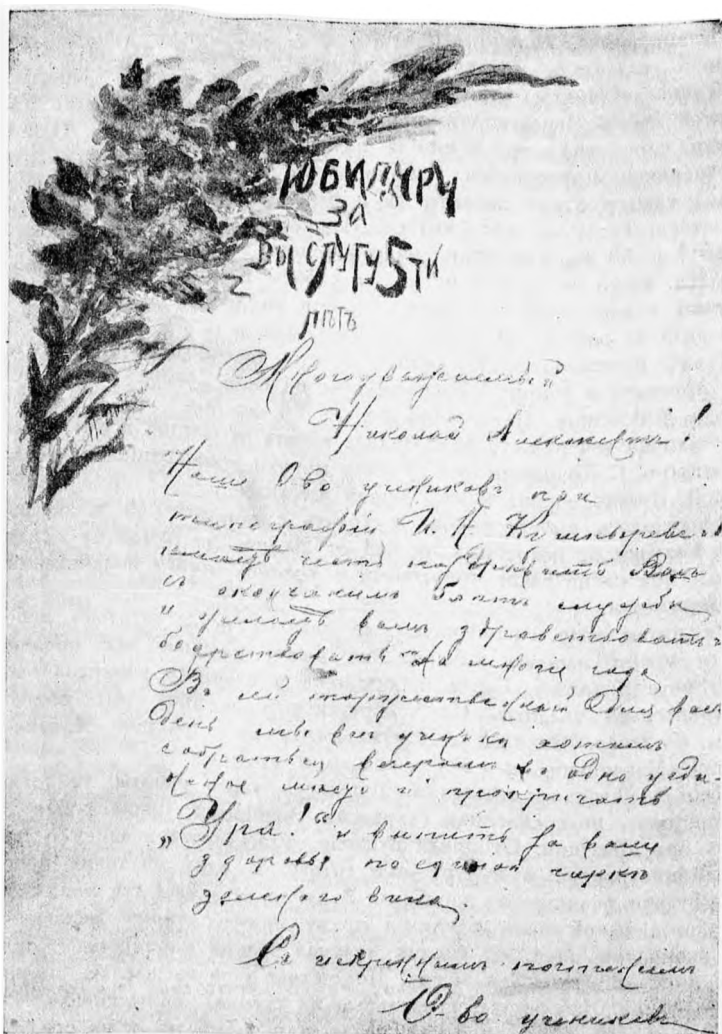 ЮБИЛЯРУ
ЗА
ВЫСЛУГУ 5ТИ
ЛѢТЪ
Многоуважаемый
Николай Алексѣевичъ!
Наше О-во учениковъ при
типографіи И. Н. Кушнерева
имѣетъ честь поздравить Васъ
съ окончаніемъ 5ти лѣтъ службы
и желаемъ вамъ здравствовать и
бодрствовать на многіе года
Въ сей торжественный для васъ
день мы всѣ ученики хотимъ
собраться вечеромъ въ одно уеди-
ненное мѣсто и прокричать
„Ура!“ и выпить за ваше
здоровье по единой чаркѣ
вина
Съ искреннимъ почтеніемъ
О-во учениковъ